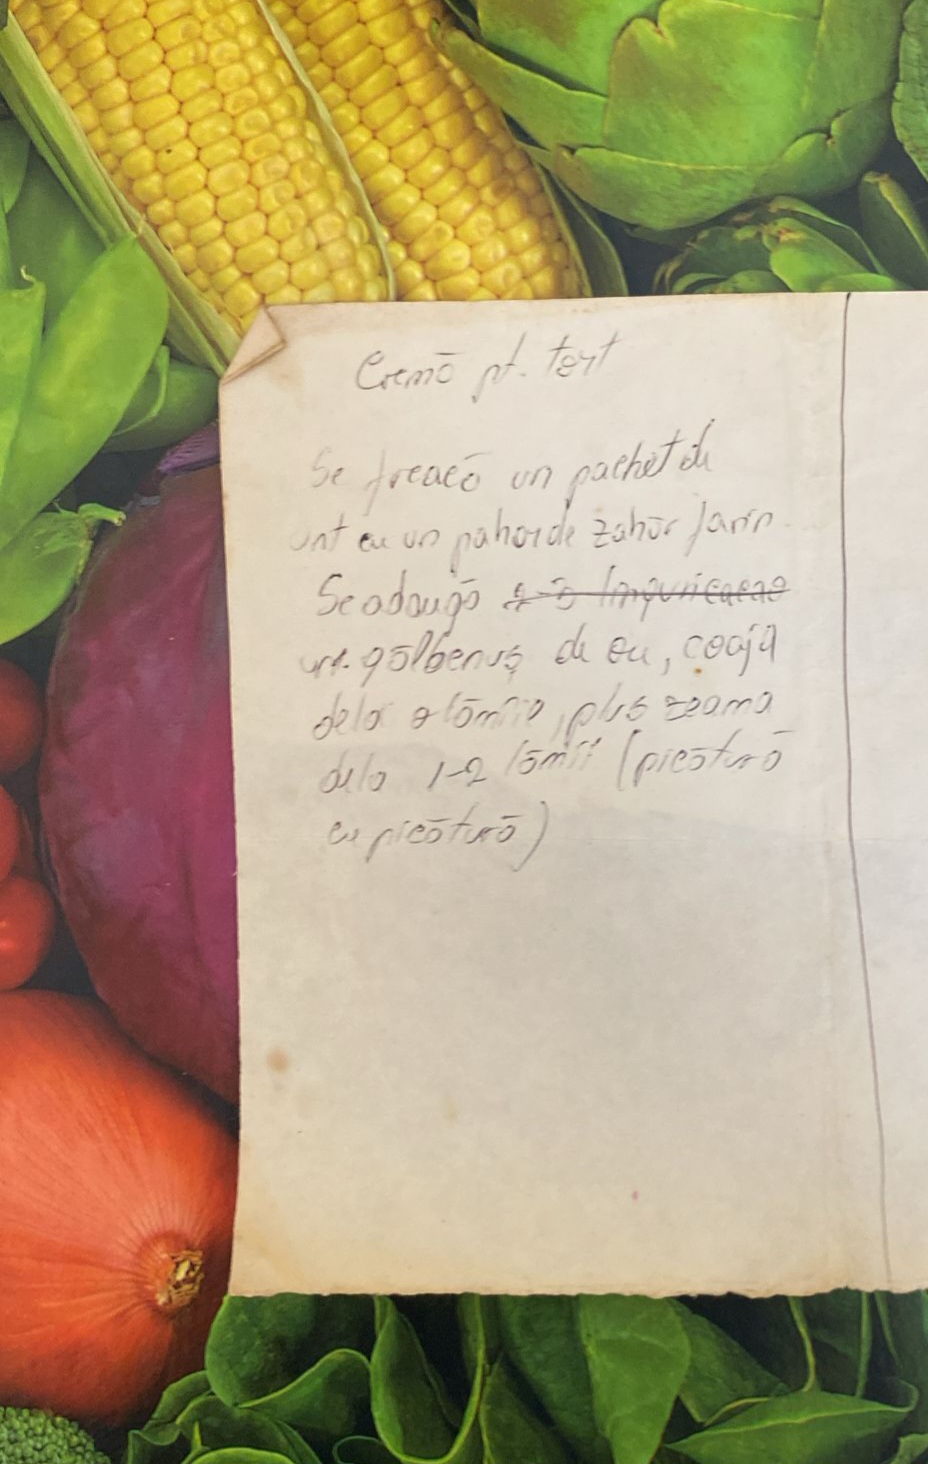 Cremă pt. tort
Se freacă un pachet de
unt cu un pahar de zahăr farin
Se adaugă
un gălbenuș de ou, coaja
dela o lămîie, plus zeama
dela 1-2 lămîi (picătură
cu picătură)